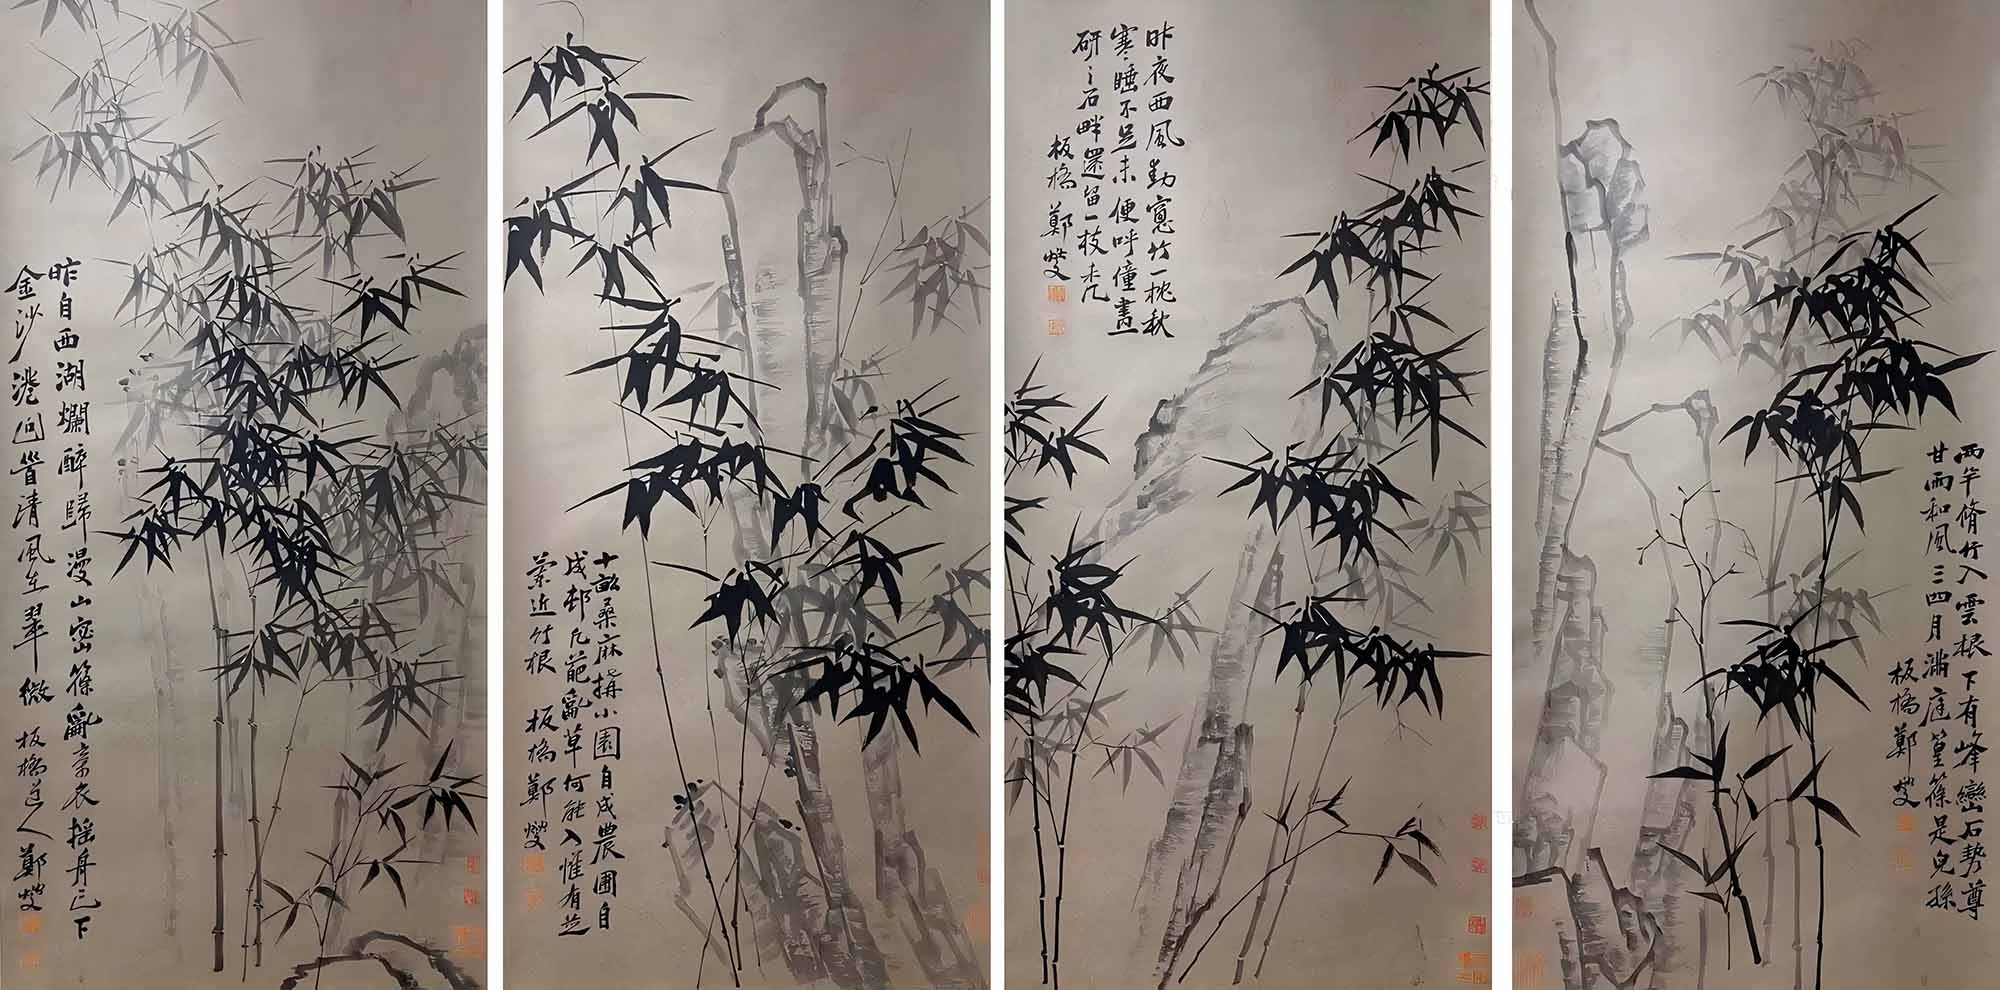 昨自西湖爛醉歸漫山密篠亂牽衣搖舟已下
金沙港回首清風在翠微 板橋道人鄭燮
十畝桑麻構小園自成農圃自
成邨凡葩亂草何能入惟有芝
蘭近竹根 板橋鄭燮
昨夜西風動窗竹一枕秋
寒睡不足未便呼僮盡
斫之石畔還留一枝禿
板橋鄭燮
兩竿脩竹入雲根下有峰巒石勢尊
甘雨和風三四月滿庭篁篠是兒孫
板橋鄭燮